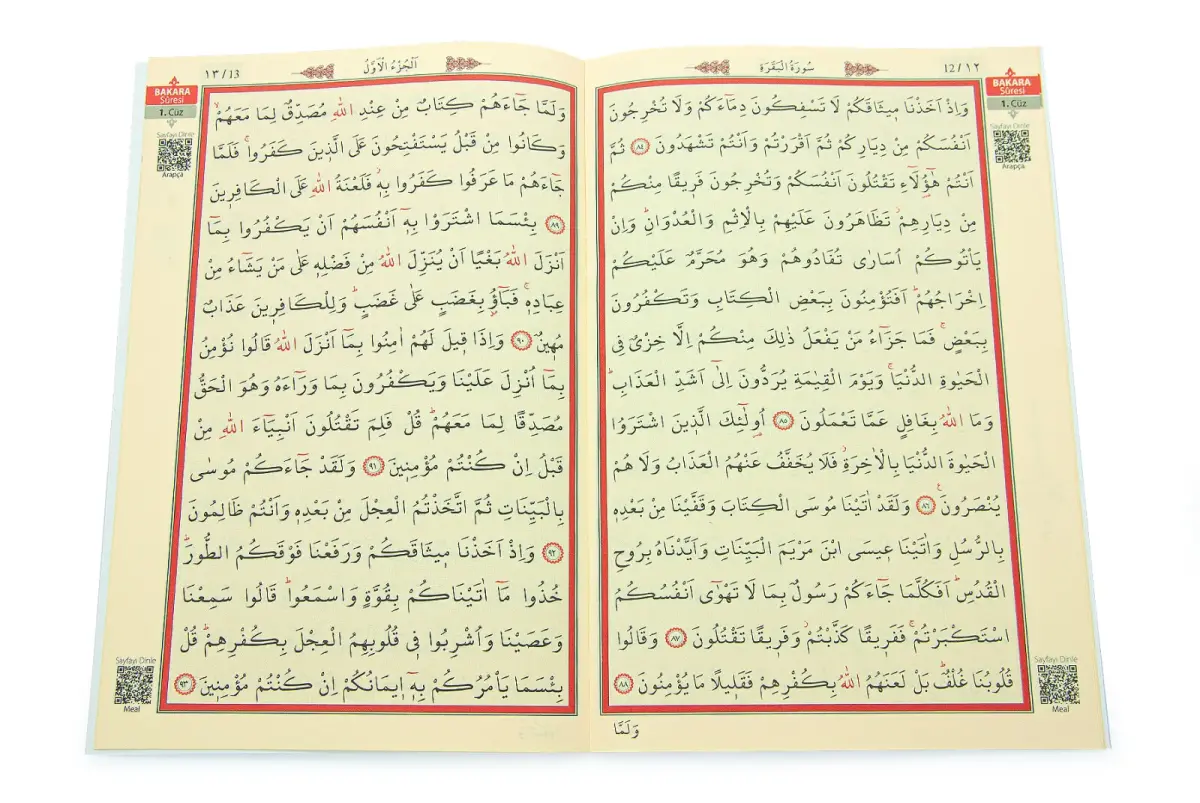 12/١٢
سُورَةُ الْبَقَرَةِ
BAKARA
Sûresi
1. Cüz
Sayfayı Dinle
Arapça
وَاِذْ اَخَذْنَا م۪يثَاقَكُمْ لَا تَسْفِكُونَ دِمَٓاءَكُمْ وَلَا تُخْرِجُونَ
اَنْفُسَكُمْ مِنْ دِيَارِكُمْ ثُمَّ اَقْرَرْتُمْ وَاَنْتُمْ تَشْهَدُونَ ﴿٨٤﴾ ثُمَّ
اَنْتُمْ هٰٓؤُ۬لَٓاءِ تَقْتُلُونَ اَنْفُسَكُمْ وَتُخْرِجُونَ فَر۪يقًا مِنْكُمْ
مِنْ دِيَارِهِمْۘ تَظَاهَرُونَ عَلَيْهِمْ بِالْاِثْمِ وَالْعُدْوَانِۜ وَاِنْ
يَأْتُوكُمْ اُسَارٰى تُفَادُوهُمْ وَهُوَ مُحَرَّمٌ عَلَيْكُمْ
اِخْرَاجُهُمْۜ اَفَتُؤْمِنُونَ بِبَعْضِ الْكِتَابِ وَتَكْفُرُونَ
بِبَعْضٍۚ فَمَا جَزَٓاءُ مَنْ يَفْعَلُ ذٰلِكَ مِنْكُمْ اِلَّا خِزْيٌ فِي
الْحَيٰوةِ الدُّنْيَاۚ وَيَوْمَ الْقِيٰمَةِ يُرَدُّونَ اِلٰٓى اَشَدِّ الْعَذَابِۜ
وَمَا اللّٰهُ بِغَافِلٍ عَمَّا تَعْمَلُونَ ﴿٨٥﴾ اُو۬لٰٓئِكَ الَّذ۪ينَ اشْتَرَوُا
الْحَيٰوةَ الدُّنْيَا بِالْاٰخِرَةِۘ فَلَا يُخَفَّفُ عَنْهُمُ الْعَذَابُ وَلَا هُمْ
يُنْصَرُونَ۟ ﴿٨٦﴾ وَلَقَدْ اٰتَيْنَا مُوسَى الْكِتَابَ وَقَفَّيْنَا مِنْ بَعْدِه۪
بِالرُّسُلِ وَاٰتَيْنَا ع۪يسَى ابْنَ مَرْيَمَ الْبَيِّنَاتِ وَاَيَّدْنَاهُ بِرُوحِ
الْقُدُسِۜ اَفَكُلَّمَا جَٓاءَكُمْ رَسُولٌ بِمَا لَا تَهْوٰٓى اَنْفُسُكُمُ
اسْتَكْبَرْتُمْۚ فَفَر۪يقًا كَذَّبْتُمْۘ وَفَر۪يقًا تَقْتُلُونَ ﴿٨٧﴾ وَقَالُوا
قُلُوبُنَا غُلْفٌۜ بَلْ لَعَنَهُمُ اللّٰهُ بِكُفْرِهِمْ فَقَل۪يلًا مَا يُؤْمِنُونَ ﴿٨٨﴾
وَلَمَّا
Sayfayı Dinle
Meal
اَلْجُزْءُ الْاَوَّلُ
١٣/13
BAKARA
Sûresi
1. Cüz
Sayfayı Dinle
Arapça
وَلَمَّا جَٓاءَهُمْ كِتَابٌ مِنْ عِنْدِ اللّٰهِ مُصَدِّقٌ لِمَا مَعَهُمْۙ
وَكَانُوا مِنْ قَبْلُ يَسْتَفْتِحُونَ عَلَى الَّذ۪ينَ كَفَرُواۚ فَلَمَّا
جَٓاءَهُمْ مَا عَرَفُوا كَفَرُوا بِه۪ۘ فَلَعْنَةُ اللّٰهِ عَلَى الْكَافِر۪ينَ
﴿٨٩﴾ بِئْسَمَا اشْتَرَوْا بِه۪ٓ اَنْفُسَهُمْ اَنْ يَكْفُرُوا بِمَٓا
اَنْزَلَ اللّٰهُ بَغْيًا اَنْ يُنَزِّلَ اللّٰهُ مِنْ فَضْلِه۪ عَلٰى مَنْ يَشَٓاءُ مِنْ
عِبَادِه۪ۚ فَبَٓاؤُ۫ بِغَضَبٍ عَلٰى غَضَبٍۜ وَلِلْكَافِر۪ينَ عَذَابٌ
مُه۪ينٌ ﴿٩٠﴾ وَاِذَا ق۪يلَ لَهُمْ اٰمِنُوا بِمَٓا اَنْزَلَ اللّٰهُ قَالُوا نُؤْمِنُ
بِمَٓا اُنْزِلَ عَلَيْنَا وَيَكْفُرُونَ بِمَا وَرَٓاءَهُ وَهُوَ الْحَقُّ
مُصَدِّقًا لِمَا مَعَهُمْۜ قُلْ فَلِمَ تَقْتُلُونَ اَنْبِيَٓاءَ اللّٰهِ مِنْ
قَبْلُ اِنْ كُنْتُمْ مُؤْمِن۪ينَ ﴿٩١﴾ وَلَقَدْ جَٓاءَكُمْ مُوسٰى
بِالْبَيِّنَاتِ ثُمَّ اتَّخَذْتُمُ الْعِجْلَ مِنْ بَعْدِه۪ وَاَنْتُمْ ظَالِمُونَ
﴿٩٢﴾ وَاِذْ اَخَذْنَا م۪يثَاقَكُمْ وَرَفَعْنَا فَوْقَكُمُ الطُّورَۜ
خُذُوا مَٓا اٰتَيْنَاكُمْ بِقُوَّةٍ وَاسْمَعُواۜ قَالُوا سَمِعْنَا
وَعَصَيْنَا وَاُشْرِبُوا ف۪ي قُلُوبِهِمُ الْعِجْلَ بِكُفْرِهِمْۜ قُلْ
بِئْسَمَا يَأْمُرُكُمْ بِه۪ٓ ا۪يمَانُكُمْ اِنْ كُنْتُمْ مُؤْمِن۪ينَ ﴿٩٣﴾
Sayfayı Dinle
Meal